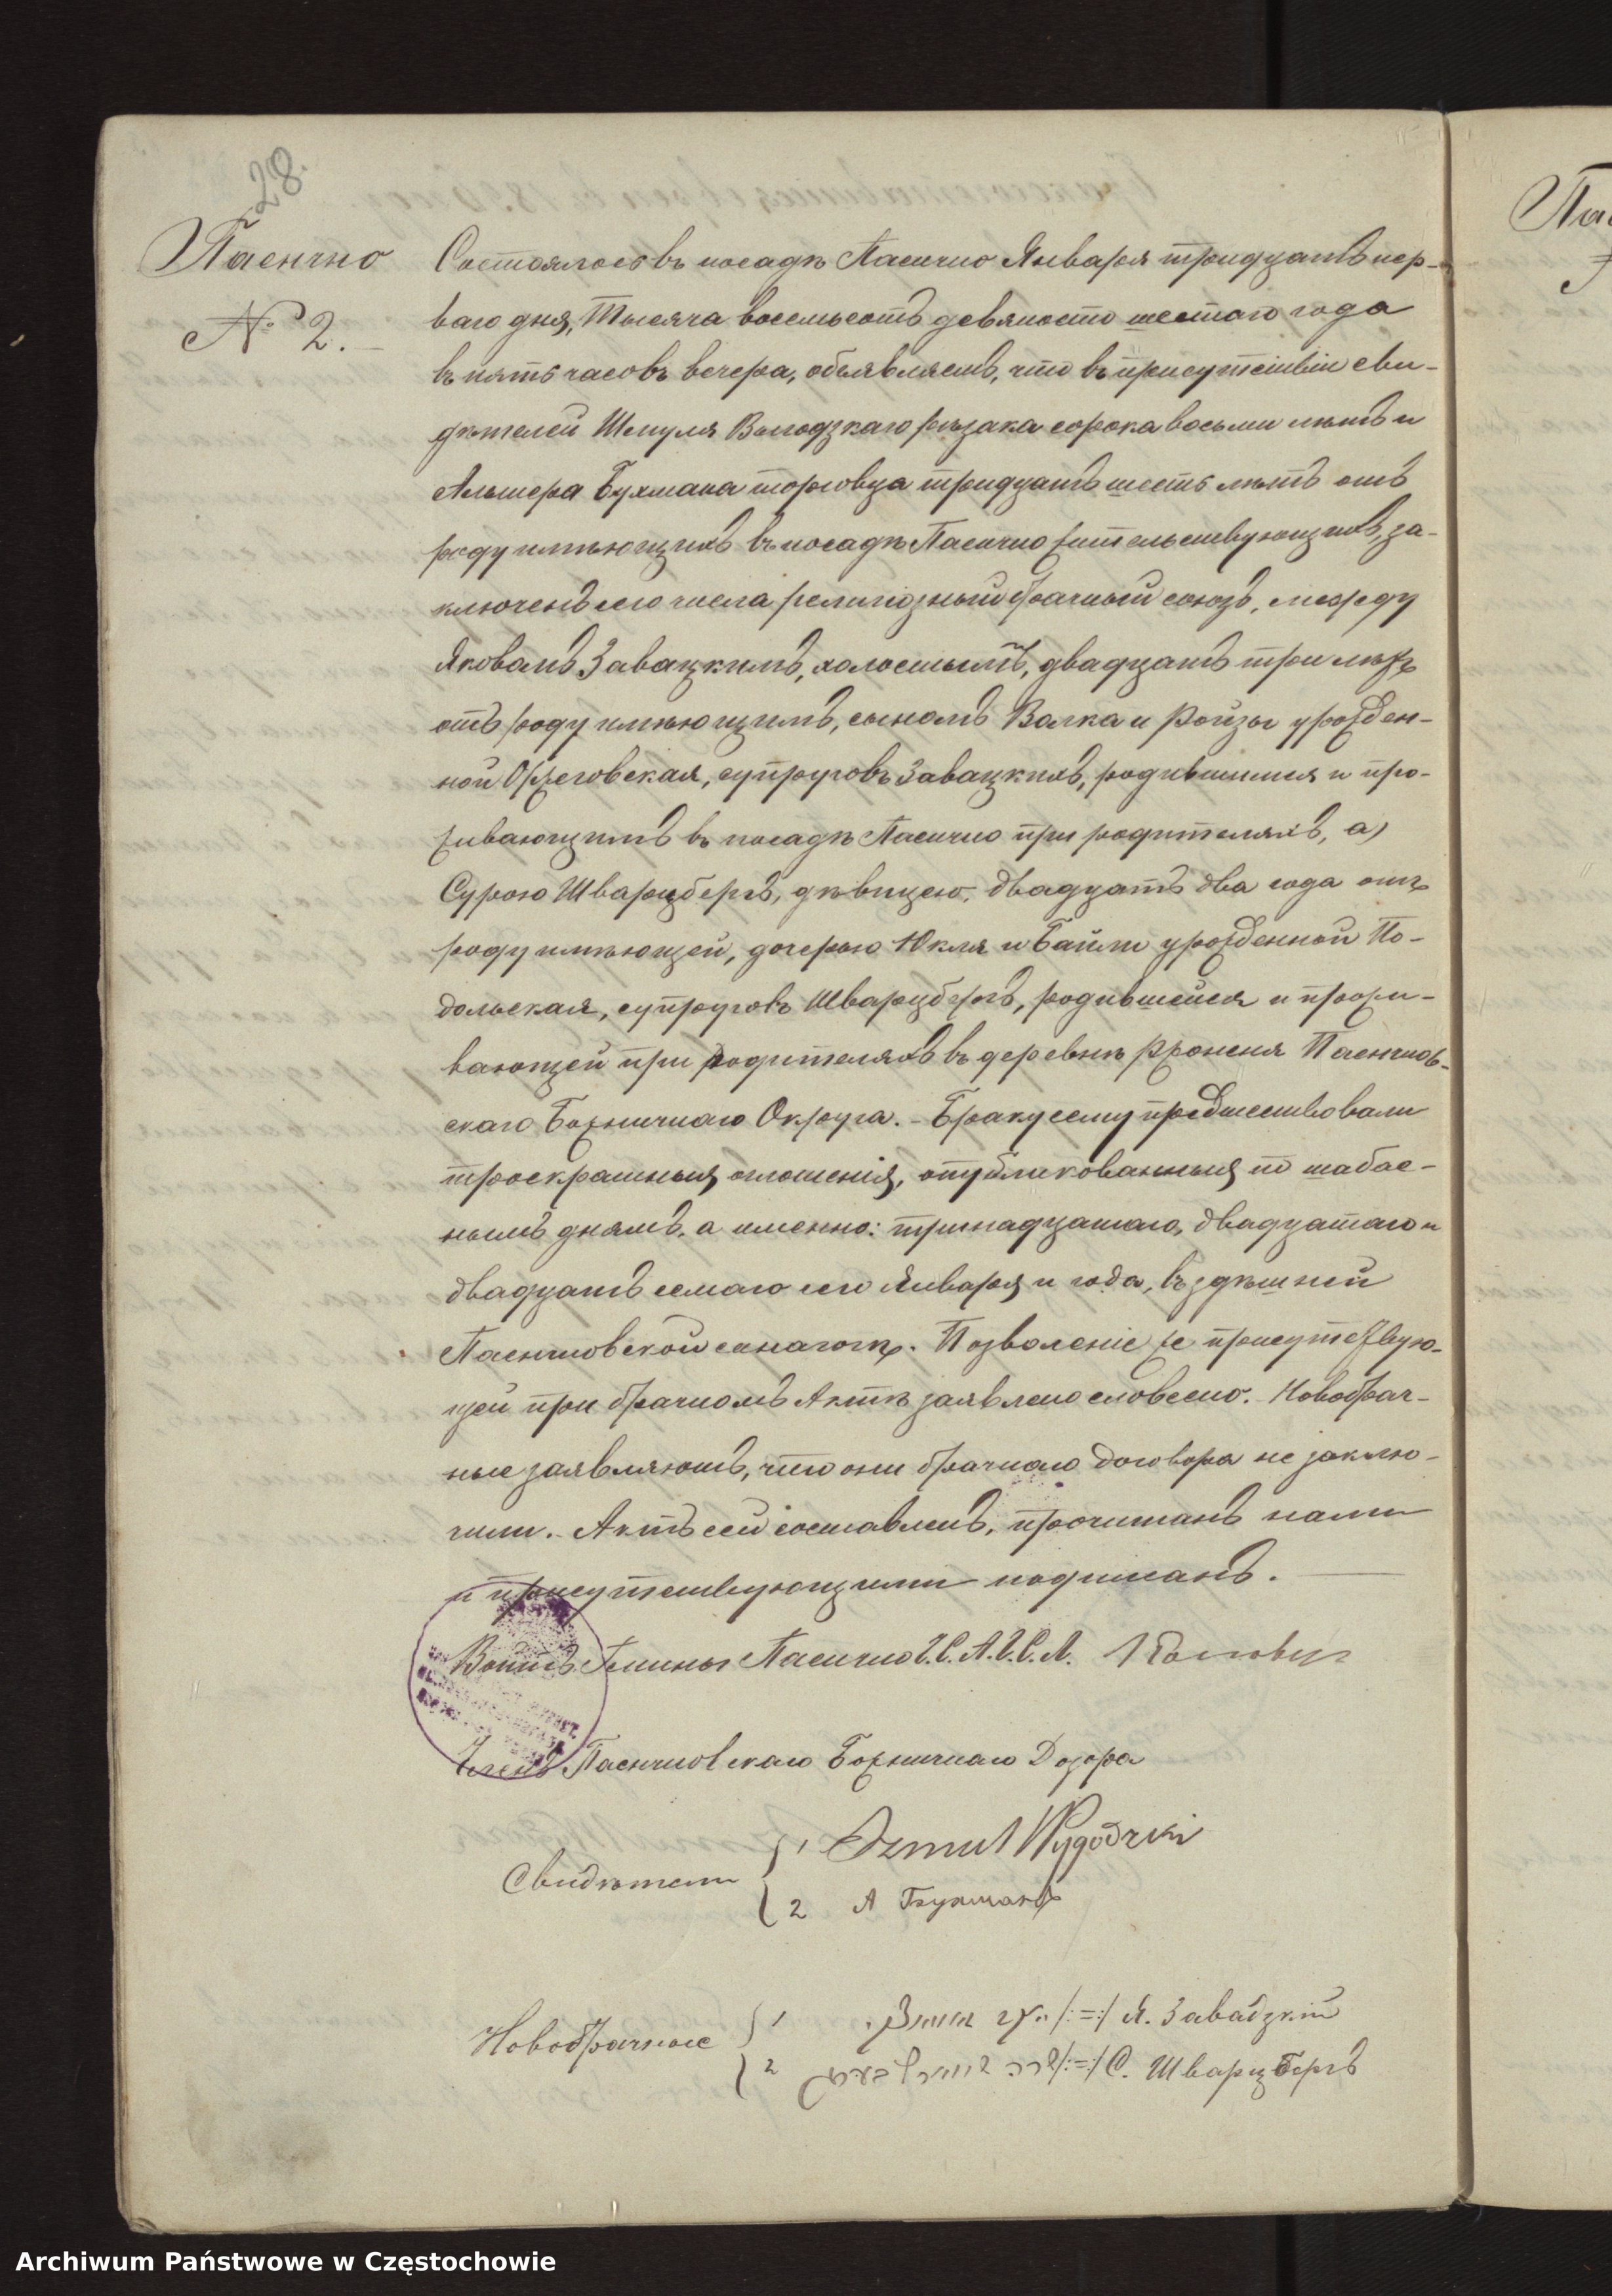 28.
Паенчно
№ 2.
Состоялось въ посадѣ Паенчно Января тридцать пер-
ваго дня, Тысяча восемьсотъ девяносто шестаго года
въ пять часовъ вечера, объявляемъ, что въ присутствіи сви-
дѣтелей Шмуля Выгодзкаго рѣзака сорока восьми лѣтъ и
Альшера Бухмана торговца тридцать шесть лѣтъ отъ
роду имѣющихъ въ посадѣ Паенчно жительствующихъ, за-
ключенъ сего числа религіозный брачный союзъ, между
Яковомъ Завацкимъ, холостымъ, двадцать три лѣтъ
отъ роду имѣющимъ, сыномъ Волка и Ройзы урожден-
ной Ожеговская, супруговъ Завацкихъ, родившимся и про-
живающимъ въ посадѣ Паенчно при родителяхъ, а)
Сурою Шварцбергъ, дѣвицею, двадцать два года отъ
роду имѣющей, дочерью Юкля и Байли урожденной По-
дольская, супруговъ Шварцбергъ, родившейся и прожи-
вающей при родителяхъ въ деревнѣ Ржонсня Паенчнов-
скаго Божничнаго Округа. - Браку сему предшествовали
троекратныя оглошенія, опубликованныя по шабас-
нымъ днямъ, а именно: тринадцатаго, двадцатаго и
двадцать семаго сего Января и года, въ здѣшней
Паенчновской синагогѣ. Позволеніе же присутствую-
щей при брачномъ Актѣ заявлено словесно. - Новобрач-
ные заявляютъ, что они брачнаго договора не заклю-
чили. - Актъ сей составленъ, прочитанъ нами
и присутствующими подписанъ.
Войтъ Гмины Паенчно Ч.С.А.Г.С.Л.
Членъ Паенчновскаго Божничнаго Дозора
Свидѣтели 1 Szmul Wygodzki
2 А Бухманъ
Новобрачные 1 /:=:/ Я. Завадзкій
2 שרה /:=:/ С. Шварцбергъ
Archiwum Państwowe w Częstochowie